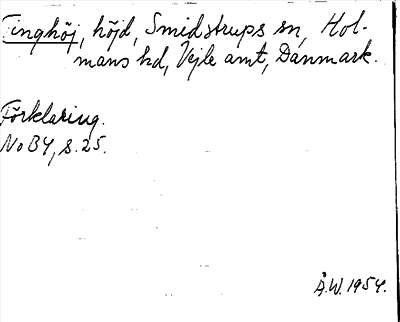 Tinghöj, höjd, Smidstrups sn, Hol-
mans hd, Vejle amt, Danmark.
Förklaring.
NoB4, s. 25.
Å.W. 1954.